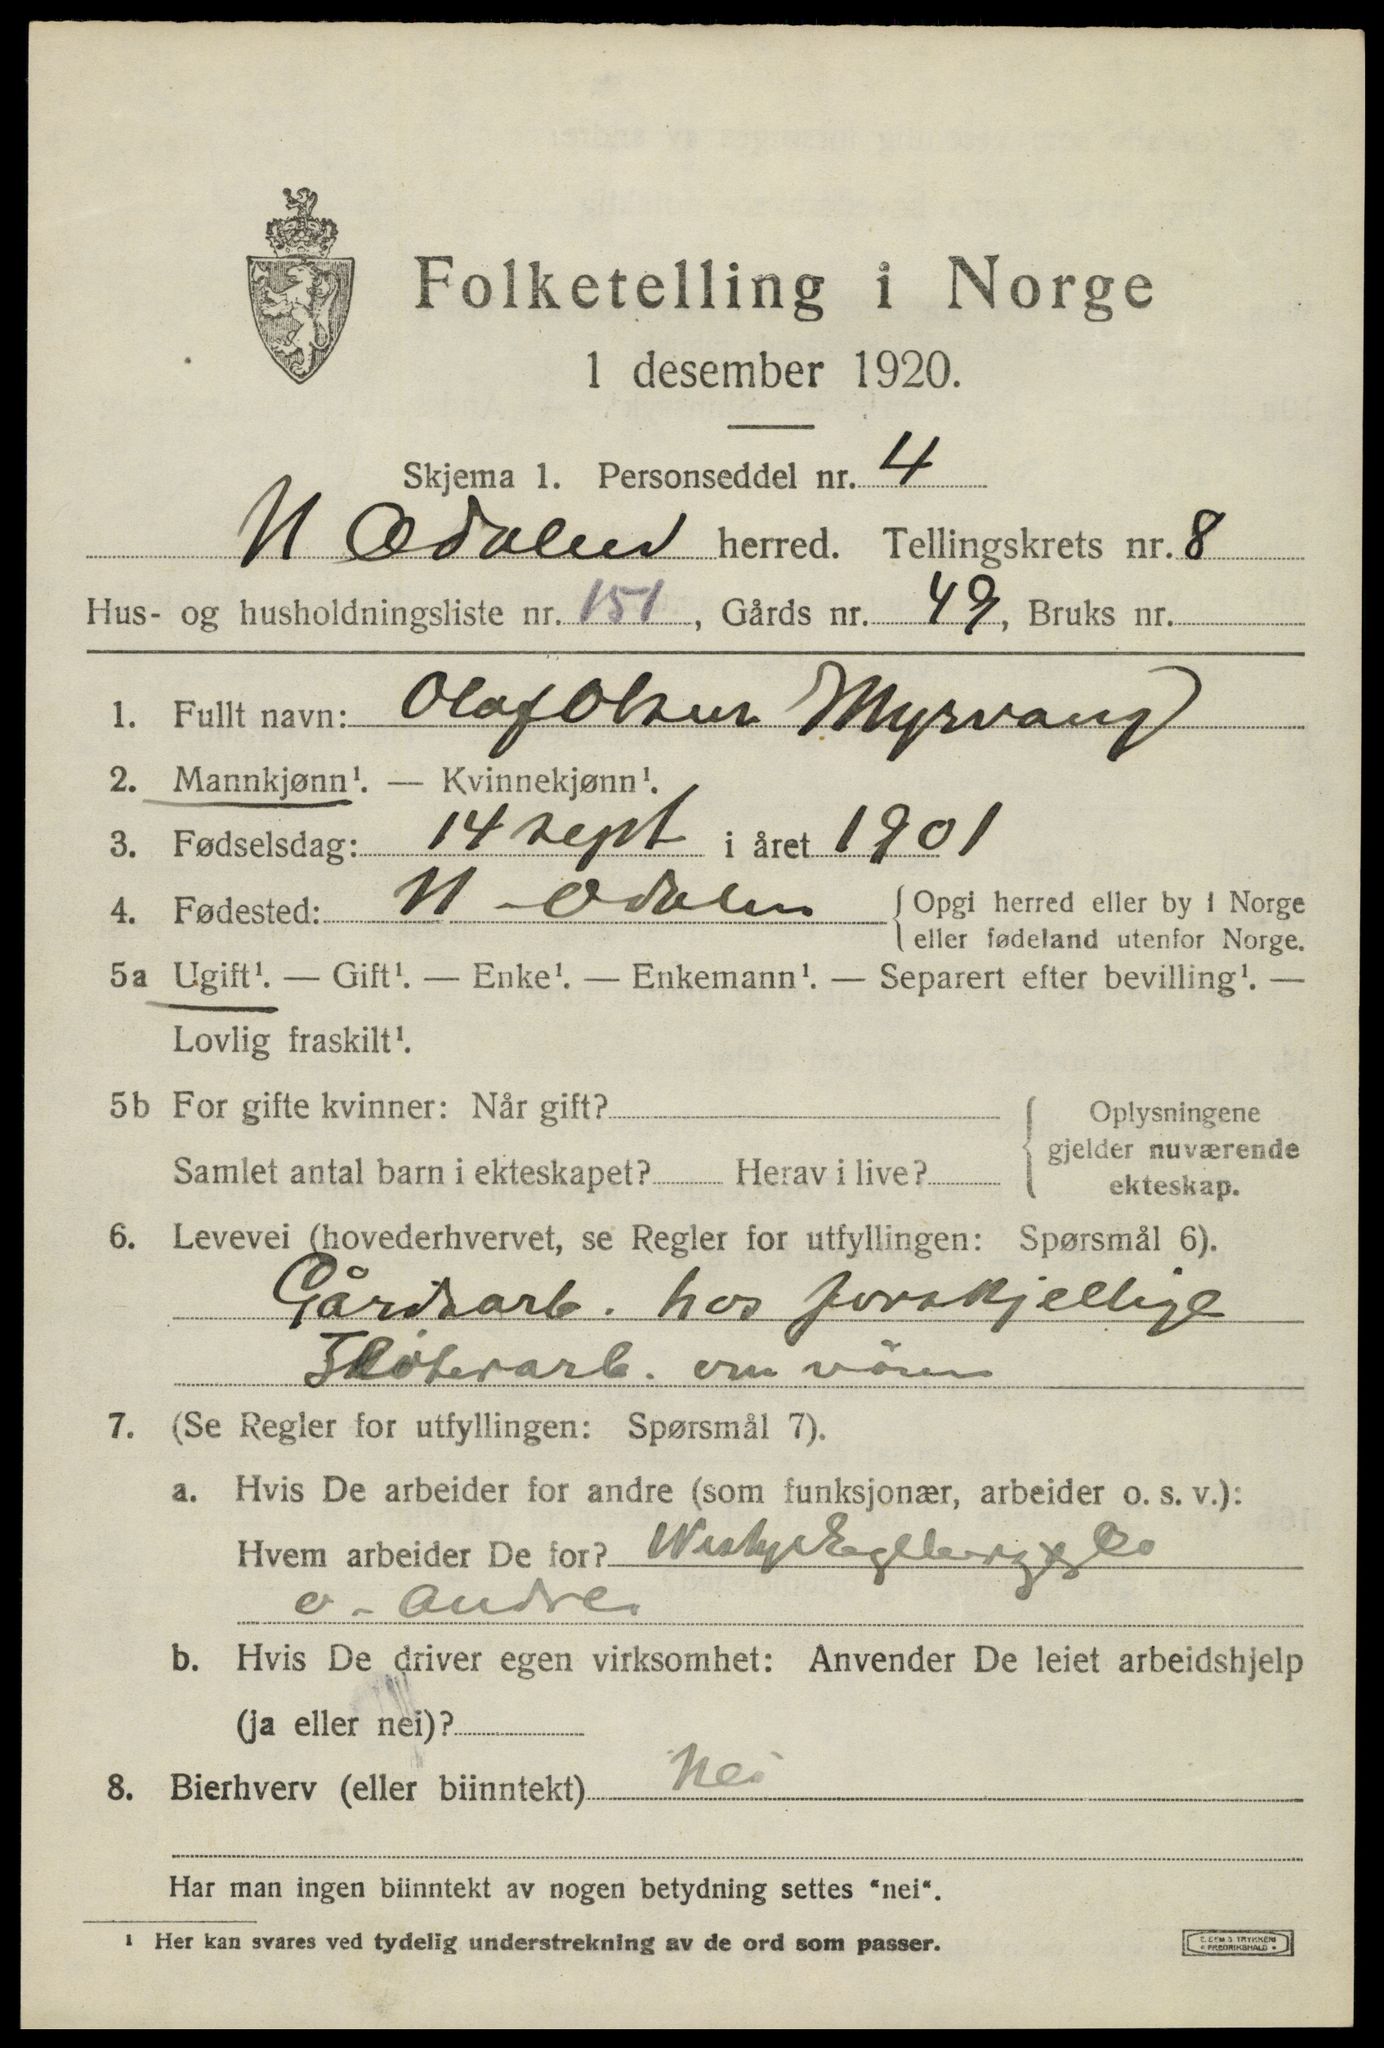 Folketelling i Norge
1 desember 1920.
Skjema 1. Personseddel nr. 4
N Odalen herred. Tellingskrets nr. 8
Hus- og husholdningsliste nr. 151, Gårds nr. 49, Bruks nr.
1. Fullt navn: Olaf Olsen Myrvang
2. Mannkjønn¹. — Kvinnekjønn¹.
3. Fødselsdag: 14 sept i året 1901
4. Fødested: N-Odalen {Opgi herred eller by i Norge
eller fødeland utenfor Norge.
5a Ugift¹. — Gift¹. — Enke¹. — Enkemann¹. — Separert efter bevilling¹. —
Lovlig fraskilt¹.
5b For gifte kvinner: Når gift?
Samlet antal barn i ekteskapet? Herav i live?
Oplysningene
gjelder nuværende
ekteskap.
6. Levevei (hovederhvervet, se Regler for utfyllingen: Spørsmål 6).
Gårdsarb. hos forskjellige
Fløterarb. om våren
7. (Se Regler for utfyllingen: Spørsmål 7).
a. Hvis De arbeider for andre (som funksjonær, arbeider o. s. v.):
Hvem arbeider De for? Co
o. Andre
b. Hvis De driver egen virksomhet: Anvender De leiet arbeidshjelp
(ja eller nei)?
8. Bierhverv (eller biinntekt) Nei
Har man ingen biinntekt av nogen betydning settes "nei".
¹ Her kan svares ved tydelig understrekning av de ord som passer.
FREDRIKSHALD